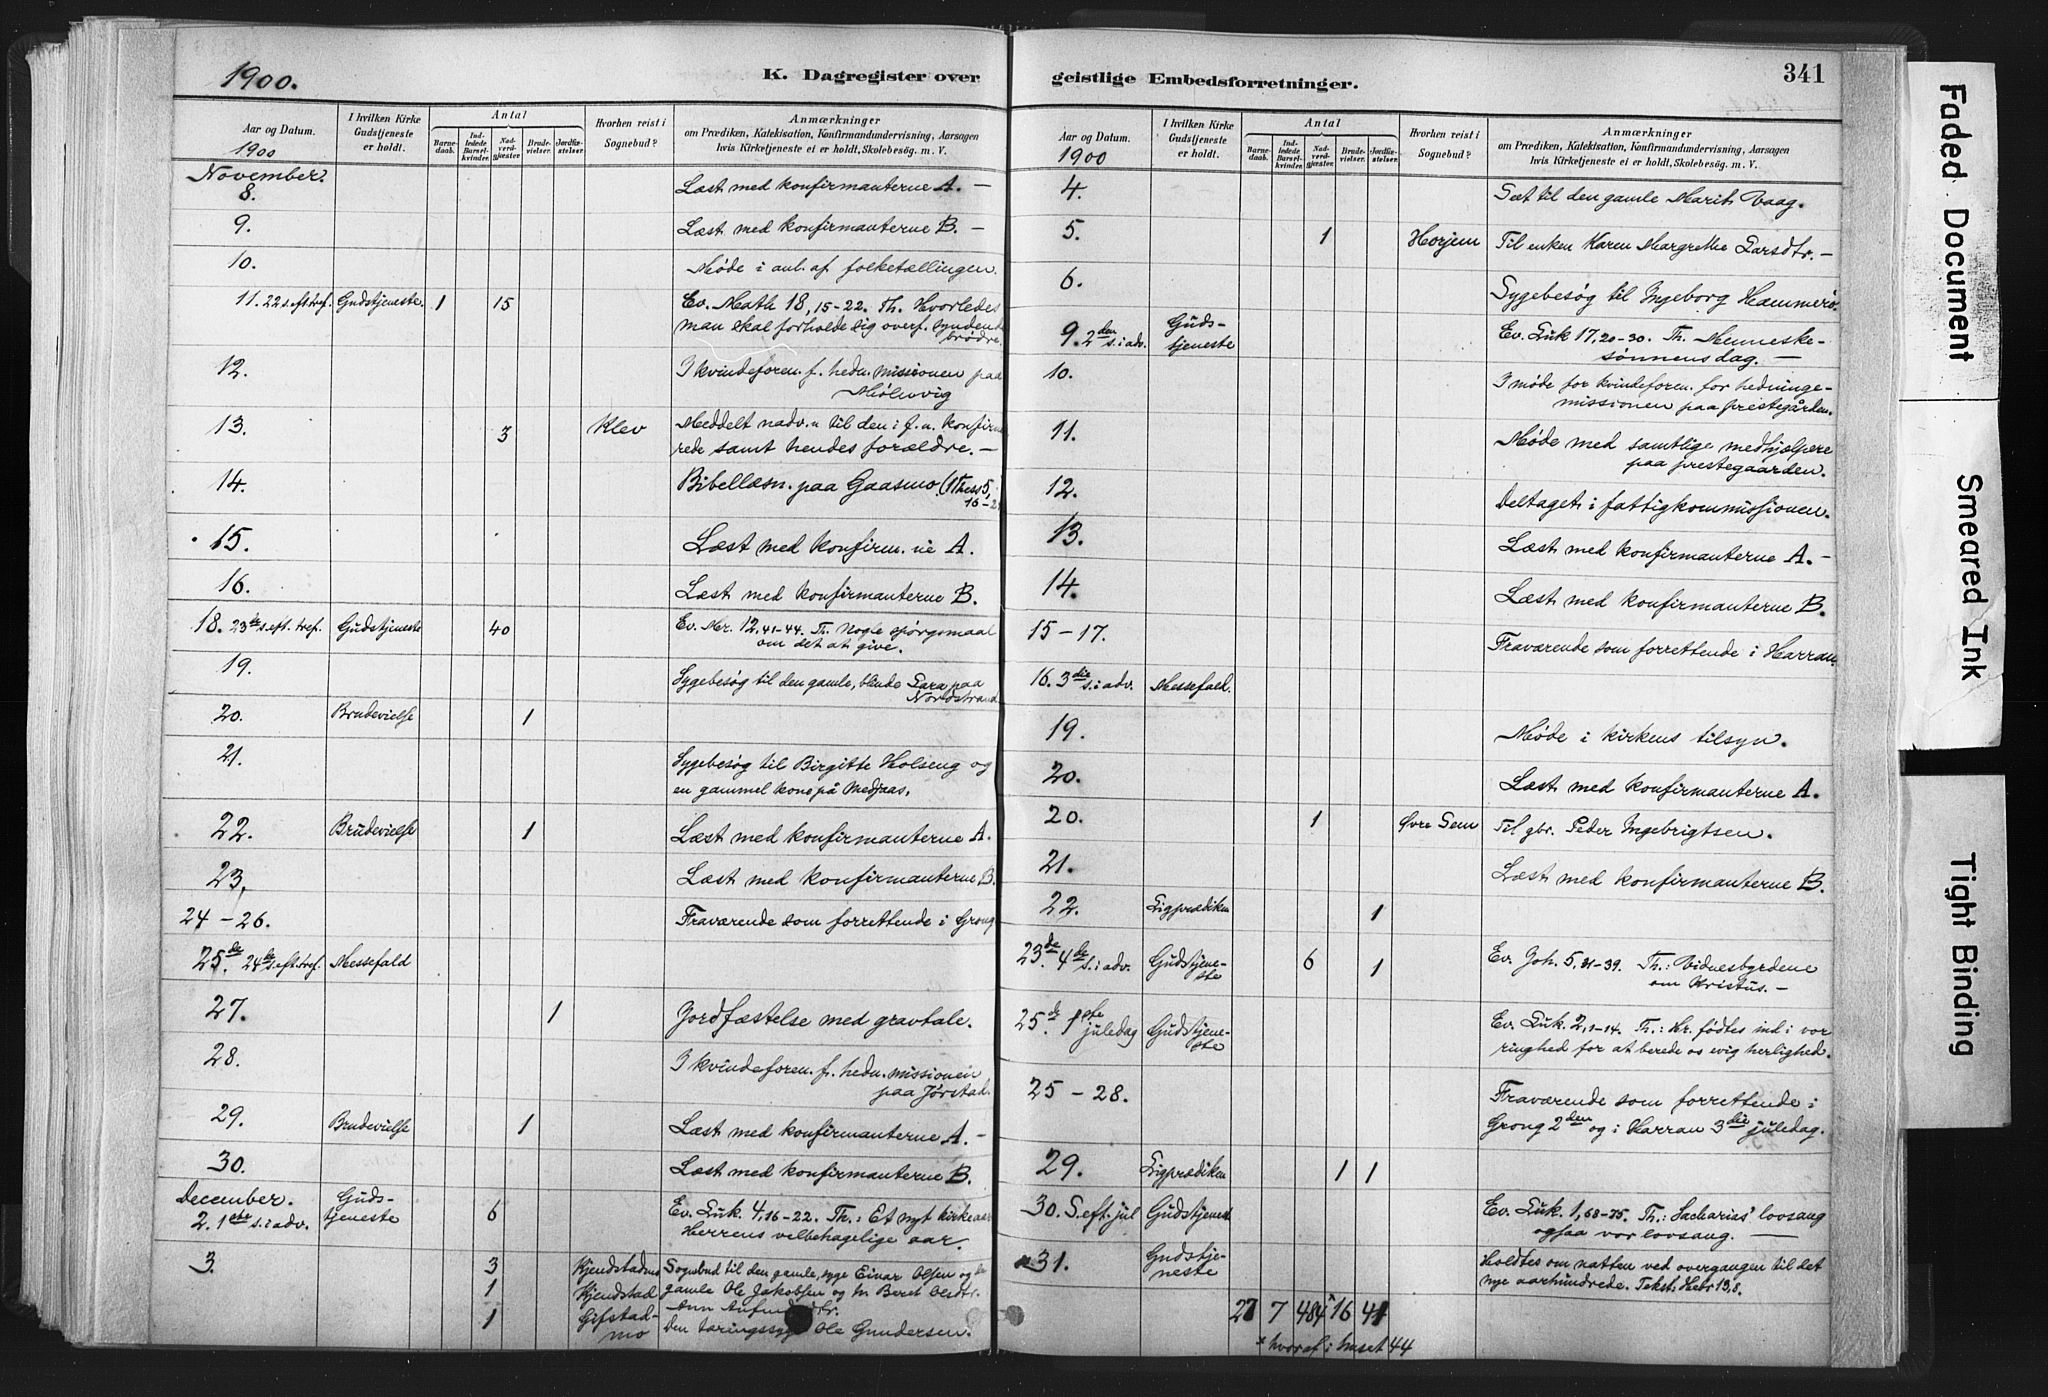 1900.
K. Dagregister over
Aar og Datum.
1900
I hvilken Kirke
Gudstjeneste
er holdt.
Antal
Barne-
daab.
Ind-
ledede
Barsel-
kvinder.
Nad-
verd-
gjester.
Brude-
vielser.
Jordfæ-
stelser.
Hvorhen reist i
Sognebud?
Anmærkninger
om Prædiken, Katekisation, Konfirmandundervisning, Aarsagen
hvis Kirketjeneste ei er holdt, Skolebesøg. m. V.
November.
8. Læst med konfirmanterne A. —
9. Læst med konfirmanterne B. —
10. Møde i anl. af folketællingen.
11. 22 s. eft. tref. Gudstjeneste. 1 15 Ev. Math 18, 15-22. Th. Hvorledes
man skal forholde sig overf. syndende
brødre.
12. I kvindeforen. f. hedn. missionen paa
Mølnvig
13. 3 Klev Meddelt nadv.n til den i f. u. konfirme-
rede samt hendes forældre. —
14. Bibellæsn. paa Gaasmo (1 Thess 5,
16-2
15. Læst med konfirm. ne A.
16. Læst med konfirmanterne B.
18. 23de s. eft. tref. Gudstjeneste 40 Ev. Mr. 12, 41-44. Th. Nogle spørgsmaal
om det at give.
19. Sygebesøg til den gamle, blinde Sara paa
Nordstrand
20. Brudevielse 1
21. Sygebesøg til Birgitte Holseng og
en gammel kone på Medjaas.
22. Brudevielse 1 Læst med konfirmanterne A.
23. Læst med konfirmanterne B.
24-26. Fraværende som forrettende i Grong
25de. 24de s. eft. tref. Messefald
27. 1 Jordfæstelse med gravtale.
28. I kvindeforen. f. hedn. missionen
paa Jørstad.
29. Brudevielse 1 Læst med konfirmanterne A. —
30. Læst med konfirmanterne B.
December.
2. 1ste s. i adv. Guds-
tjeneste 6 Ev. Luk. 4, 16-22. Th.: Et nyt kirkeaar
Herrens velbehagelige aar.
3. 3 Kjendstadmo Sognebud til den gamle, syge Einar Olsen og
1 Kjendstad gamle Ole Jakobsen og Beret Olsdtr.
1 Gifstad-
mo Den tæringssyge Ole Gundersen.
geistlige Embedsforretninger.
341
Aar og Datum.
1900
I hvilken Kirke
Gudstjeneste
er holdt.
Antal
Barne-
daab.
Ind-
ledede
Barsel-
kvinder.
Nad-
verd-
gjester.
Brude-
vielser.
Jordfæ-
stelser.
Hvorhen reist i
Sognebud?
Anmærkninger
om Prædiken, Katekisation, Konfirmandundervisning, Aarsagen
hvis Kirketjeneste ei er holdt, Skolebesøg. m. V.
4. Sæt til den gamle Marit Vaag.
5. 1 Horjem Til enken Karen Margrethe Larsdtr. —
6. Sygebesøg til Ingeborg Hammerø.
9. 2den s. i adv. Guds-
tjeneste Ev. Luk 17, 20-30. Th. Menneske-
sønnens dag. —
10. I møde for kvindeforen. for hedninge-
missionen paa prestegården.
11. Møde med samtlige medhjælpere
paa prestegaarden.
12. Deltaget i fattigkommissionen.
13. Læst med konfirmanterne A. —
14. Læst med konfirmanterne B.
15-17. Fraværende som forrettende i Harran.
16. 3die s. i adv. Messefald.
19. Møde i kirkens tilsyn.
20. Læst med konfirmanterne A.
20. 1 Øvre Sem Til gbr. Peder Ingebrigtsen.
21. Læst med konfirmanterne B.
22. Ligprædiken 1
23de. 4de s. i adv. Gudstjene-
ste 6 1 Ev. Joh. 5, 31-39. Th.: Vidnesbyrdene
om Kristus. —
25de. 1ste juledag Gudstjene-
ste Ev. Luk. 2, 1-14. Th.: Kr. fødtes ind i vor
ringhed for at berede os evig herlighed.
25-28. Fraværende som forrettende i
Grong 2den og i Harran 3die juledag.
29. Ligprædiken 1 1
30. S. eft. jul Gudstjenest Ev. Luk. 1, 68-75. Th.: Sacharias' lovsang
ogsaa vor lovsang. —
31. Gudstje-
neste Holdtes om natten ved overgangen til det
nye aarhundrede. Tekst: Hebr 13, 8.
27 7 484 x 16 41
x hvoraf i huset 44
Faded Document
Smeared Ink
Tight Binding